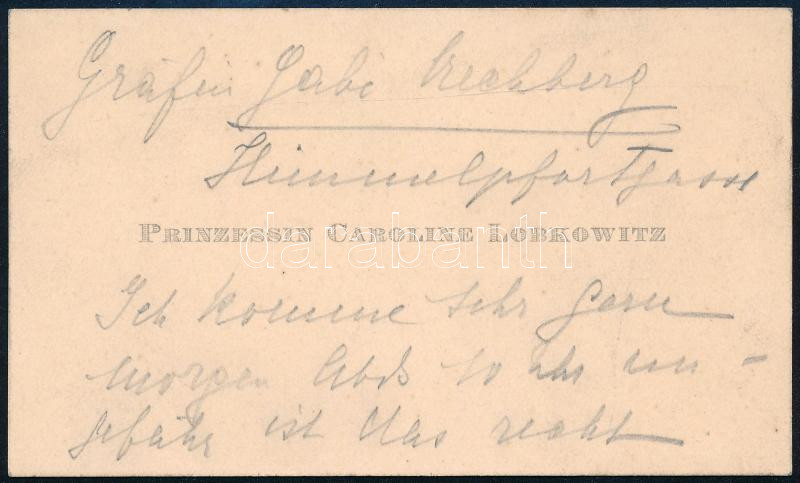 Gräfin Gabi Rechberg
Himmelpfortgasse
PRINZESSIN CAROLINE LOBKOWITZ
darabanth
Ich komme sehr gern
morgen Abds 10 Uhr un-
gefähr ist das recht